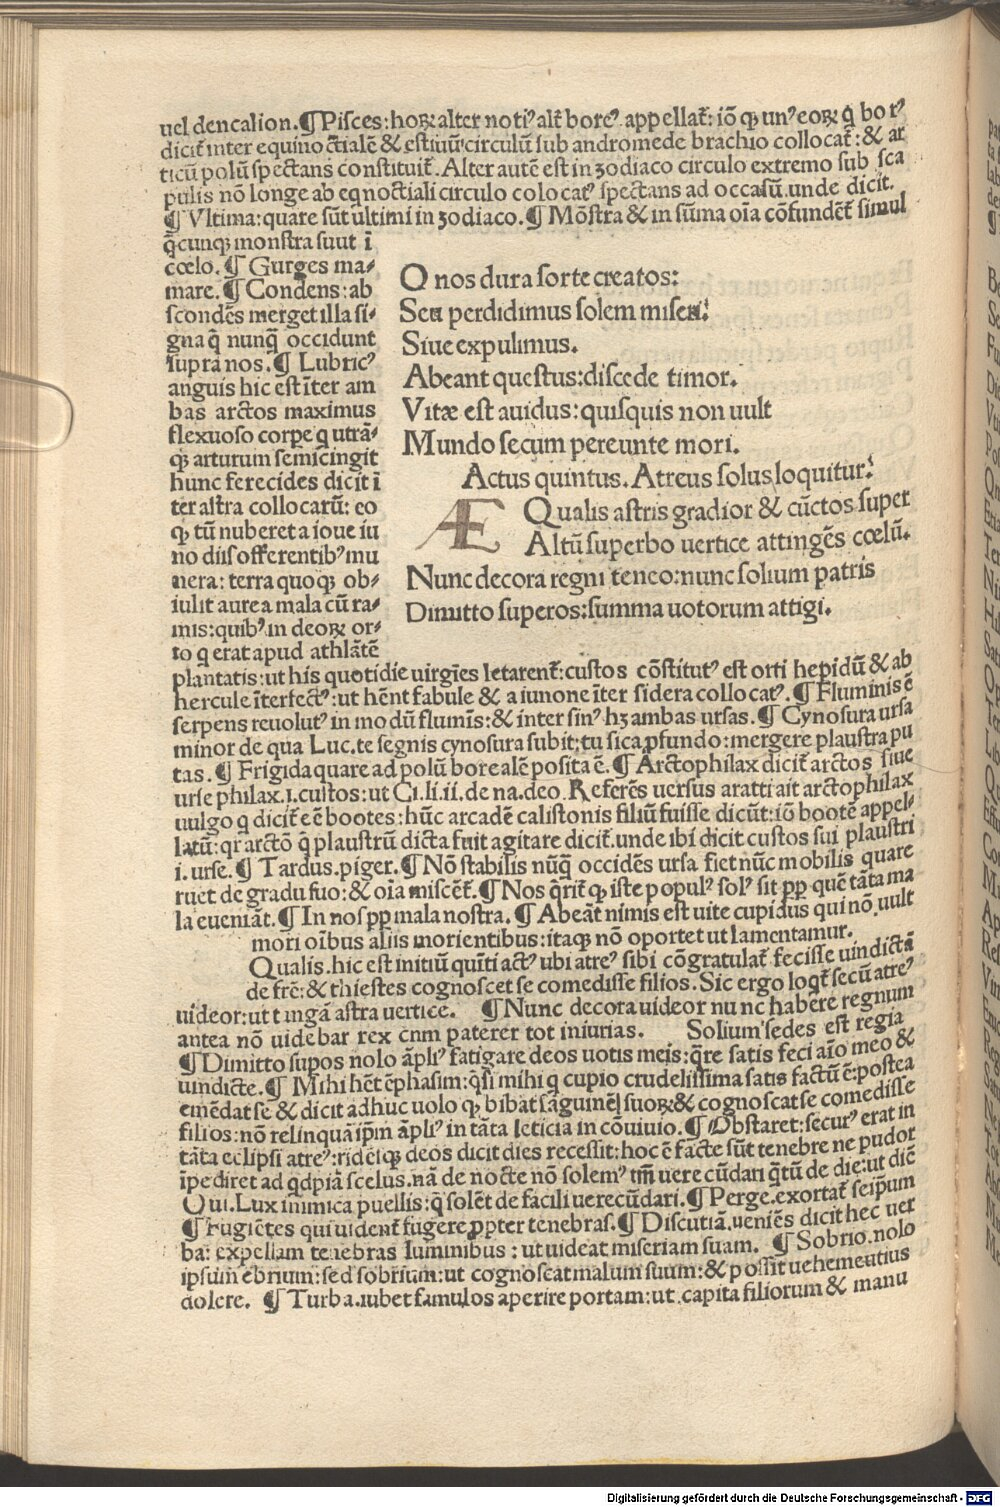 uel dencalion.¶Pisces:hoꝝ alter notiꝰ alt̃ boreꝰ appellat̃: iõ ꝙ unꝰ eoꝝ q̇ borꝰ
dicit̃ inter equinoctialẽ & estiuũ circulũ sub andromede brachio collocat̃:& ar
ticũ polũ spectans constituit̃.Alter autẽ est in ʒodiaco circulo extremo sub sca
pulis nõ longe ab eqnoctiali circulo colocatꝰ spectans ad occasũ.unde dicit.
¶Vltima:quare sũt ultimi in ʒodiaco.¶Mõstra & in sũma oĩa cõfundẽt̃ simul
q̃cunqꝫ monstra suut ĩ
cœlo.¶Gurges ma⸗
mare.¶Condens:ab
scondẽs merget illa si⸗
gna q̃ nunq̃ occidunt
supra nos.¶Lubricꝰ
anguis hic est ĩter am
bas arctos maximus
flexuoso corpe q utrã⸗
qꝫ arturum semicingit
hunc ferecides dicit ĩ
ter astra collocarũ: eo
ꝙ tũ nuberet a ioue iu
no diis offerentibꝰ mu
nera:terra quoqꝫ ob⸗
iulit aurea mala cũ ra⸗
mis:quibꝰ in deoꝝ or⸗
to q erat apud athlãtẽ
O nos dura sorte creatos:
Seu perdidimus solem miseri:
Siue expulimus.
Abeant questus:discede timor.
Vitæ est auidus:quisquis non uult
Mundo secum pereunte mori.
Actus quintus.Atreus solus loquitur:
Æ Qualis astris gradior & cũctos super
Altũ superbo uertice attingẽs cœlũ.
Nunc decora regni teneo:nunc solium patris
Dimitto superos:summa uotorum attigi.
plantatis:ut his quotidie uirgĩes letarent̃:custos cõstitutꝰ est orti hepidũ & ab
hercule ĩterfectꝰ:ut hẽnt fabule & a iunone ĩter sidera collocatꝰ.¶Fluminis ẽ
serpens reuolutꝰ in modũ flumĩs:& inter sinꝰ hꝫ ambas ursas.¶Cynosura ursa
minor de qua Luc.te segnis cynosura subit:tu sica ꝓfundo:mergere plaustra pu
tas.¶Frigida quare ad polũ borealẽ posita ẽ.¶Arctophilax dicit̃ arctos siue
urse philax.i.custos:ut Ci.li.ii.de na.deo.Referẽs uersus aratti ait arctophilax
uulgo q dicit̃ eẽ bootes:hũc arcadẽ calistonis filiũ fuisse dicũt:iõ bootẽ appel⸗
latũ:qr arctõ q̃ plaustrũ dicta fuit agitare dicit̃.unde ibi dicit custos sui plaustri
i.urse.¶Tardus.piger.¶Nõ stabilis nũq̃ occidẽs ursa fiet nũc mobilis quare
ruet de gradu suo:& oĩa miscẽt̃.¶Nos q̃rit̃ ꝙ iste populꝰ solꝰ sit pp quẽ tãta ma
la eueniãt.¶In nos pp mala nostra.¶Abeãt nimis est uite cupidus qui nõ uult
mori oĩbus aliis morientibus:itaqꝫ nõ oportet ut lamentamur.
Qualis.hic est initiũ quĩti actꝰ ubi atreꝰ sibi cõgratulat̃ fecisse uindictã
de frẽ:& thiestes cognoscet se comedisse filios.Sic ergo loqt̃ secũ atreꝰ
uideor:ut tingã astra uertice. ¶Nunc decora uideor nunc habere regnum
antea nõ uidebar rex cnm paterer tot iniurias. Solium sedes est regia
¶Dimitto supos nolo ãpliꝰ fatigare deos uotis meis:q̃re satis feci aĩo meo &
uindicte.¶Mihi hẽt ẽphasim:q̃si mihi q cupio crudelissima satis factũ ẽ:postea
emẽdat se & dicit adhuc uolo ꝙ bibat sãguinẽ suoꝝ & cognoscat se comedisse
filios:nõ relinquã ip̃m ãpliꝰ in tãta leticia in cõuiuio.¶Obstaret:securꝰ erat in
tãta eclipsi atreꝰ:ridẽsqꝫ deos dicit dies recessit:hoc ẽ facte sũt tenebre ne pudor
ĩpediret ad qdpiã scelus.nã de nocte nõ solemꝰ tm̃ uerecũdari q̃tũ de die:ut diẽ
Oui.Lux inimica puellis:q̃ solẽt de facili uerecũdari.¶Perge.exortat̃ seip̃um
¶Fugiẽtes qui uident̃ fugere ꝓpter tenebras.¶Discutiã.ueniẽs dicit hec uer
ba: expellam tenebras luminibus : ut uideat miseriam suam. ¶Sobrio.nolo
ipsum ebrium:sed sobrium:ut cognoscat malum suum:& possit uehementius
dolere. ¶Turba.iubet famulos aperire portam:ut capita filiorum & manu
Digitalisierung gefördert durch die Deutsche Forschungsgemeinschaft - DFG